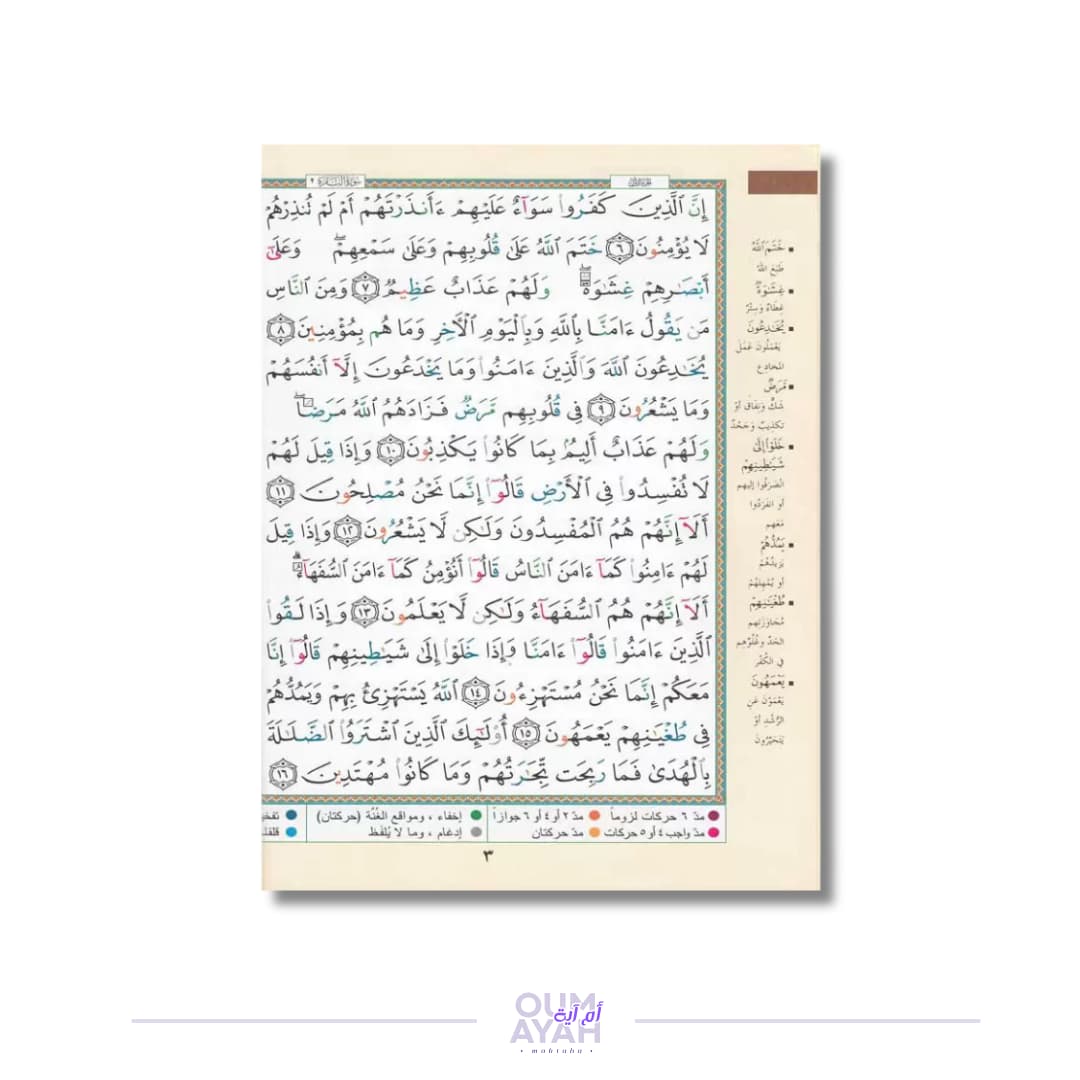 سورة البقرة ٢
الجزء الأول
إِنَّ ٱلَّذِينَ كَفَرُوا۟ سَوَآءٌ عَلَيْهِمْ ءَأَنذَرْتَهُمْ أَمْ لَمْ تُنذِرْهُمْ
لَا يُؤْمِنُونَ ٦ خَتَمَ ٱللَّهُ عَلَىٰ قُلُوبِهِمْ وَعَلَىٰ سَمْعِهِمْ ۖ وَعَلَىٰٓ
أَبْصَـٰرِهِمْ غِشَـٰوَةٌ ۖ وَلَهُمْ عَذَابٌ عَظِيمٌ ٧ وَمِنَ ٱلنَّاسِ
مَن يَقُولُ ءَامَنَّا بِٱللَّهِ وَبِٱلْيَوْمِ ٱلْـَٔاخِرِ وَمَا هُم بِمُؤْمِنِينَ ٨
يُخَـٰدِعُونَ ٱللَّهَ وَٱلَّذِينَ ءَامَنُوا۟ وَمَا يَخْدَعُونَ إِلَّآ أَنفُسَهُمْ
وَمَا يَشْعُرُونَ ٩ فِى قُلُوبِهِم مَّرَضٌ فَزَادَهُمُ ٱللَّهُ مَرَضًا ۖ
وَلَهُمْ عَذَابٌ أَلِيمٌۢ بِمَا كَانُوا۟ يَكْذِبُونَ ١٠ وَإِذَا قِيلَ لَهُمْ
لَا تُفْسِدُوا۟ فِى ٱلْأَرْضِ قَالُوٓا۟ إِنَّمَا نَحْنُ مُصْلِحُونَ ١١
أَلَآ إِنَّهُمْ هُمُ ٱلْمُفْسِدُونَ وَلَـٰكِن لَّا يَشْعُرُونَ ١٢ وَإِذَا قِيلَ
لَهُمْ ءَامِنُوا۟ كَمَآ ءَامَنَ ٱلنَّاسُ قَالُوٓا۟ أَنُؤْمِنُ كَمَآ ءَامَنَ ٱلسُّفَهَآءُ ۗ
أَلَآ إِنَّهُمْ هُمُ ٱلسُّفَهَآءُ وَلَـٰكِن لَّا يَعْلَمُونَ ١٣ وَإِذَا لَقُوا۟
ٱلَّذِينَ ءَامَنُوا۟ قَالُوٓا۟ ءَامَنَّا وَإِذَا خَلَوْا۟ إِلَىٰ شَيَـٰطِينِهِمْ قَالُوٓا۟ إِنَّا
مَعَكُمْ إِنَّمَا نَحْنُ مُسْتَهْزِءُونَ ١٤ ٱللَّهُ يَسْتَهْزِئُ بِهِمْ وَيَمُدُّهُمْ
فِى طُغْيَـٰنِهِمْ يَعْمَهُونَ ١٥ أُو۟لَـٰٓئِكَ ٱلَّذِينَ ٱشْتَرَوُا۟ ٱلضَّلَـٰلَةَ
بِٱلْهُدَىٰ فَمَا رَبِحَت تِّجَـٰرَتُهُمْ وَمَا كَانُوا۟ مُهْتَدِينَ ١٦
■ خَتَمَ اللَّهُ
طَبَعَ اللهُ
■ غِشَـٰوَةٌ
غِطَاءٌ وَسِتْرٌ
■ يُخَـٰدِعُونَ
يَعْمَلُونَ عَمَلَ
المُخَادِعِ
■ مَرَضٌ
شَكٌّ وَنِفَاقٌ أَوْ
تكذيبٌ وَجَحْدٌ
■ خَلَوْا۟ إِلَىٰ
شَيَـٰطِينِهِمْ
انْصَرَفُوا إليهم
أو انفَرَدُوا
مَعَهم
■ يَمُدُّهُمْ
يَزِيدُهُمْ
أو يُمْهِلُهُمْ
■ طُغْيَـٰنِهِمْ
مُجَاوَزَتِهِم
الحَدَّ وغُلُوِّهِم
في الكُفْر
■ يَعْمَهُونَ
يَعْمَوْنَ عَنِ
الرُّشْدِ أوْ
يَتَحَيَّرُونَ
مدّ ٦ حركات لزوماً ● مدّ ٢ أو ٤ أو ٦ جوازاً
مدّ واجب ٤ أو ٥ حركات ● مدّ حركتان
إخفاء ، ومواقع الغُنَّة (حركتان)
إدغام ، وما لا يُلفَظ
٣
OUM
أم آية
AYAH
• maktaba •